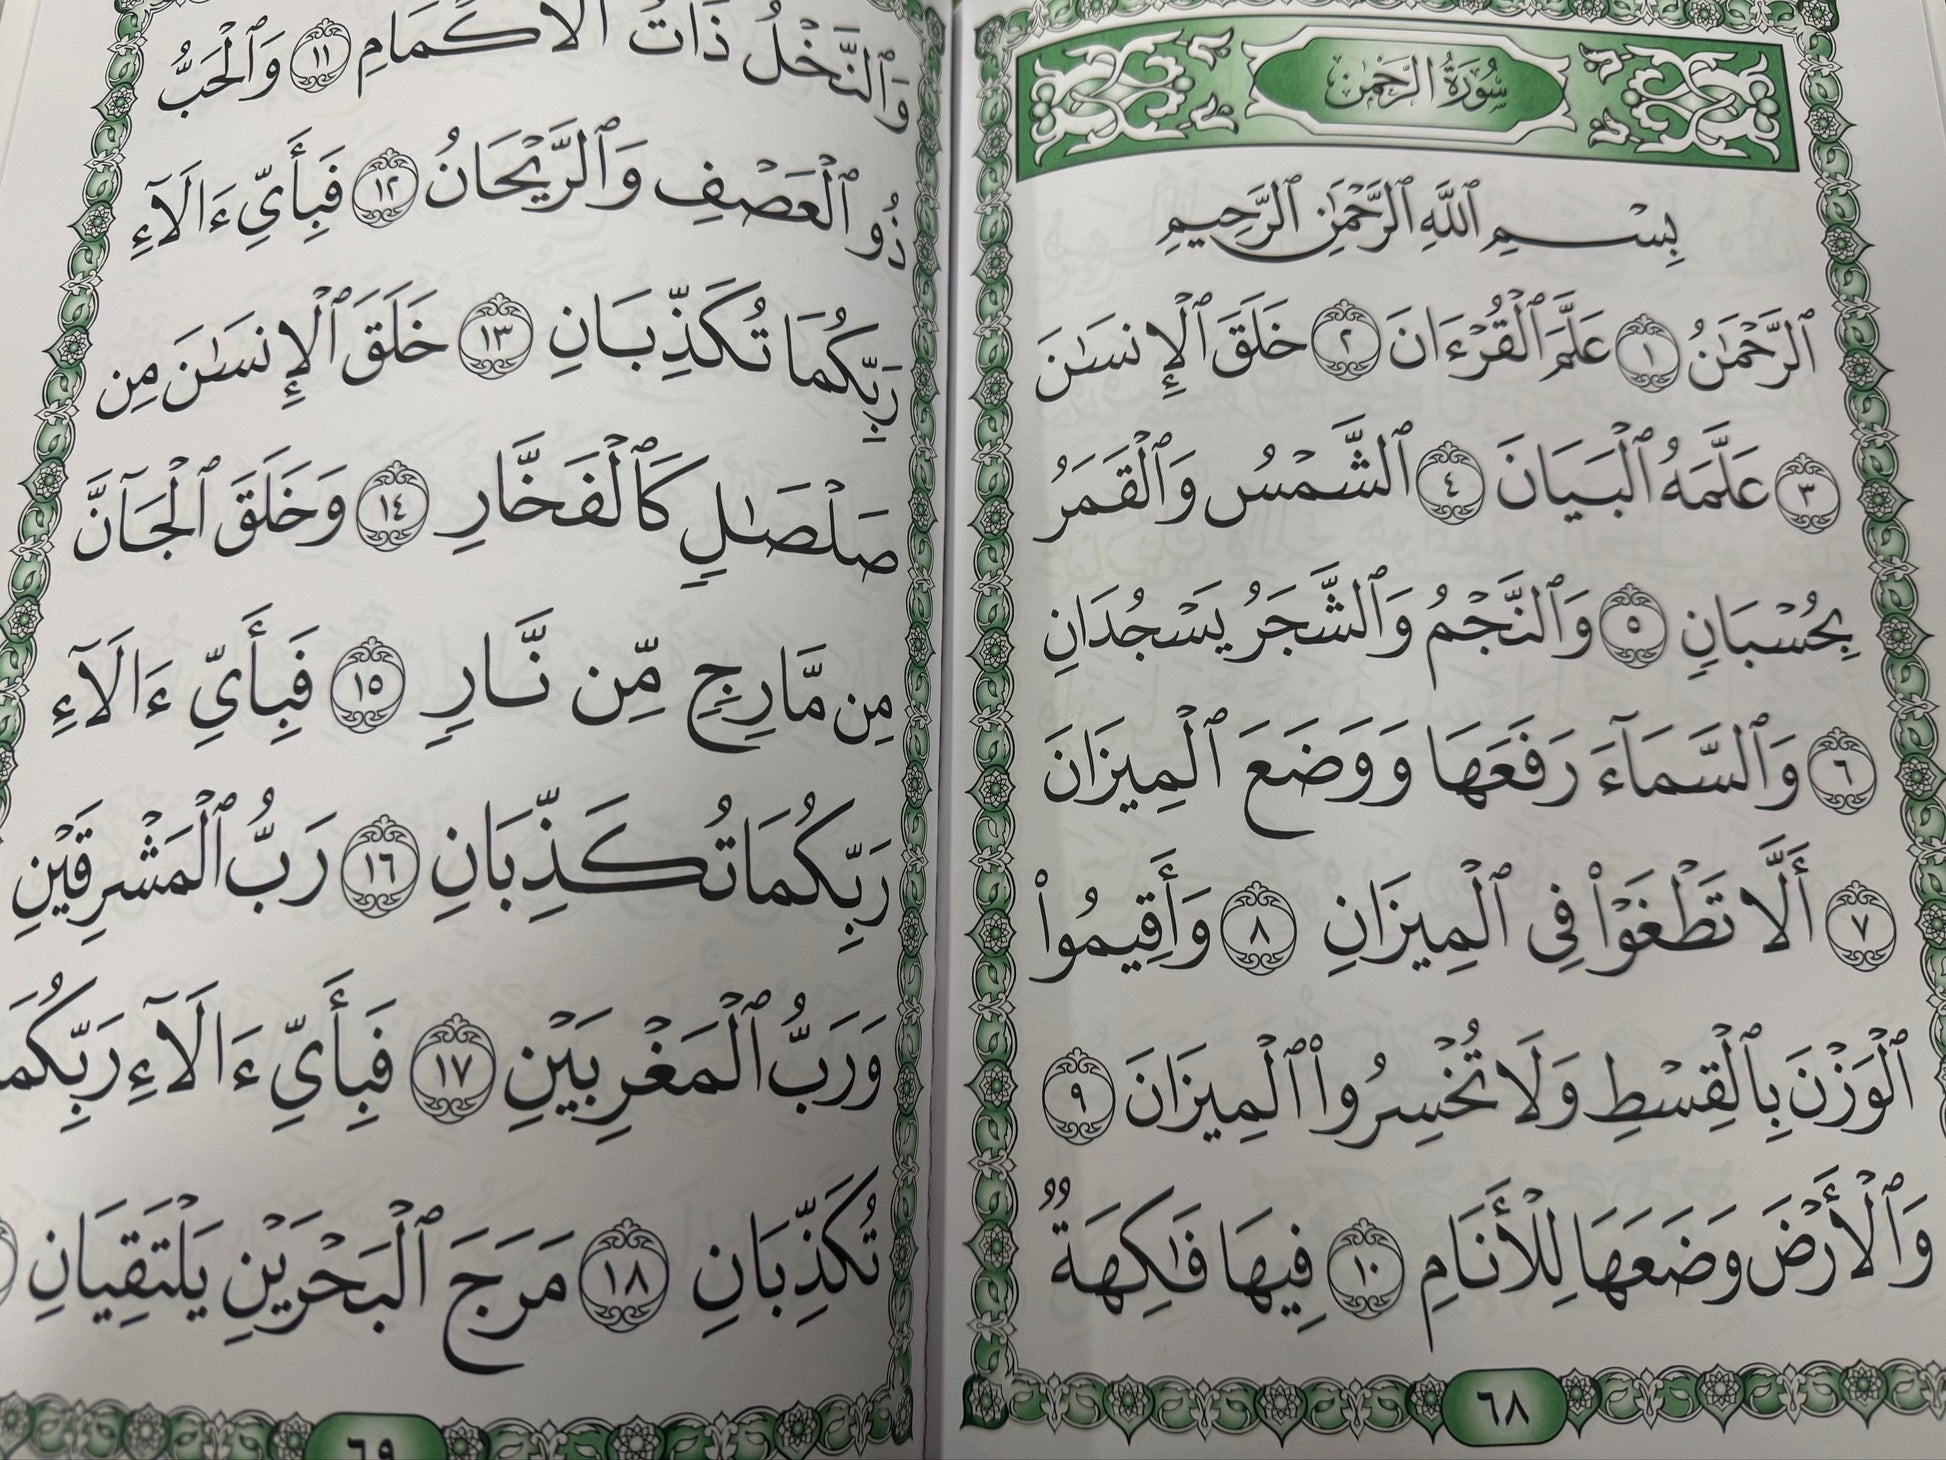 سُورَةُ الرَّحْمَن
بِسْمِ ٱللَّهِ ٱلرَّحْمَٰنِ ٱلرَّحِيمِ
ٱلرَّحْمَٰنُ ١ عَلَّمَ ٱلْقُرْءَانَ ٢ خَلَقَ ٱلْإِنسَٰنَ
٣ عَلَّمَهُ ٱلْبَيَانَ ٤ ٱلشَّمْسُ وَٱلْقَمَرُ
بِحُسْبَانٍ ٥ وَٱلنَّجْمُ وَٱلشَّجَرُ يَسْجُدَانِ
٦ وَٱلسَّمَآءَ رَفَعَهَا وَوَضَعَ ٱلْمِيزَانَ
٧ أَلَّا تَطْغَوْا۟ فِى ٱلْمِيزَانِ ٨ وَأَقِيمُوا۟
ٱلْوَزْنَ بِٱلْقِسْطِ وَلَا تُخْسِرُوا۟ ٱلْمِيزَانَ ٩
وَٱلْأَرْضَ وَضَعَهَا لِلْأَنَامِ ١٠ فِيهَا فَٰكِهَةٌ
٦٨
وَٱلنَّخْلُ ذَاتُ ٱلْأَكْمَامِ ١١ وَٱلْحَبُّ
ذُو ٱلْعَصْفِ وَٱلرَّيْحَانُ ١٢ فَبِأَىِّ ءَالَآءِ
رَبِّكُمَا تُكَذِّبَانِ ١٣ خَلَقَ ٱلْإِنسَٰنَ مِن
صَلْصَٰلٍ كَٱلْفَخَّارِ ١٤ وَخَلَقَ ٱلْجَآنَّ
مِن مَّارِجٍ مِّن نَّارٍ ١٥ فَبِأَىِّ ءَالَآءِ
رَبِّكُمَا تُكَذِّبَانِ ١٦ رَبُّ ٱلْمَشْرِقَيْنِ
وَرَبُّ ٱلْمَغْرِبَيْنِ ١٧ فَبِأَىِّ ءَالَآءِ رَبِّكُمَا
تُكَذِّبَانِ ١٨ مَرَجَ ٱلْبَحْرَيْنِ يَلْتَقِيَانِ
٦٩